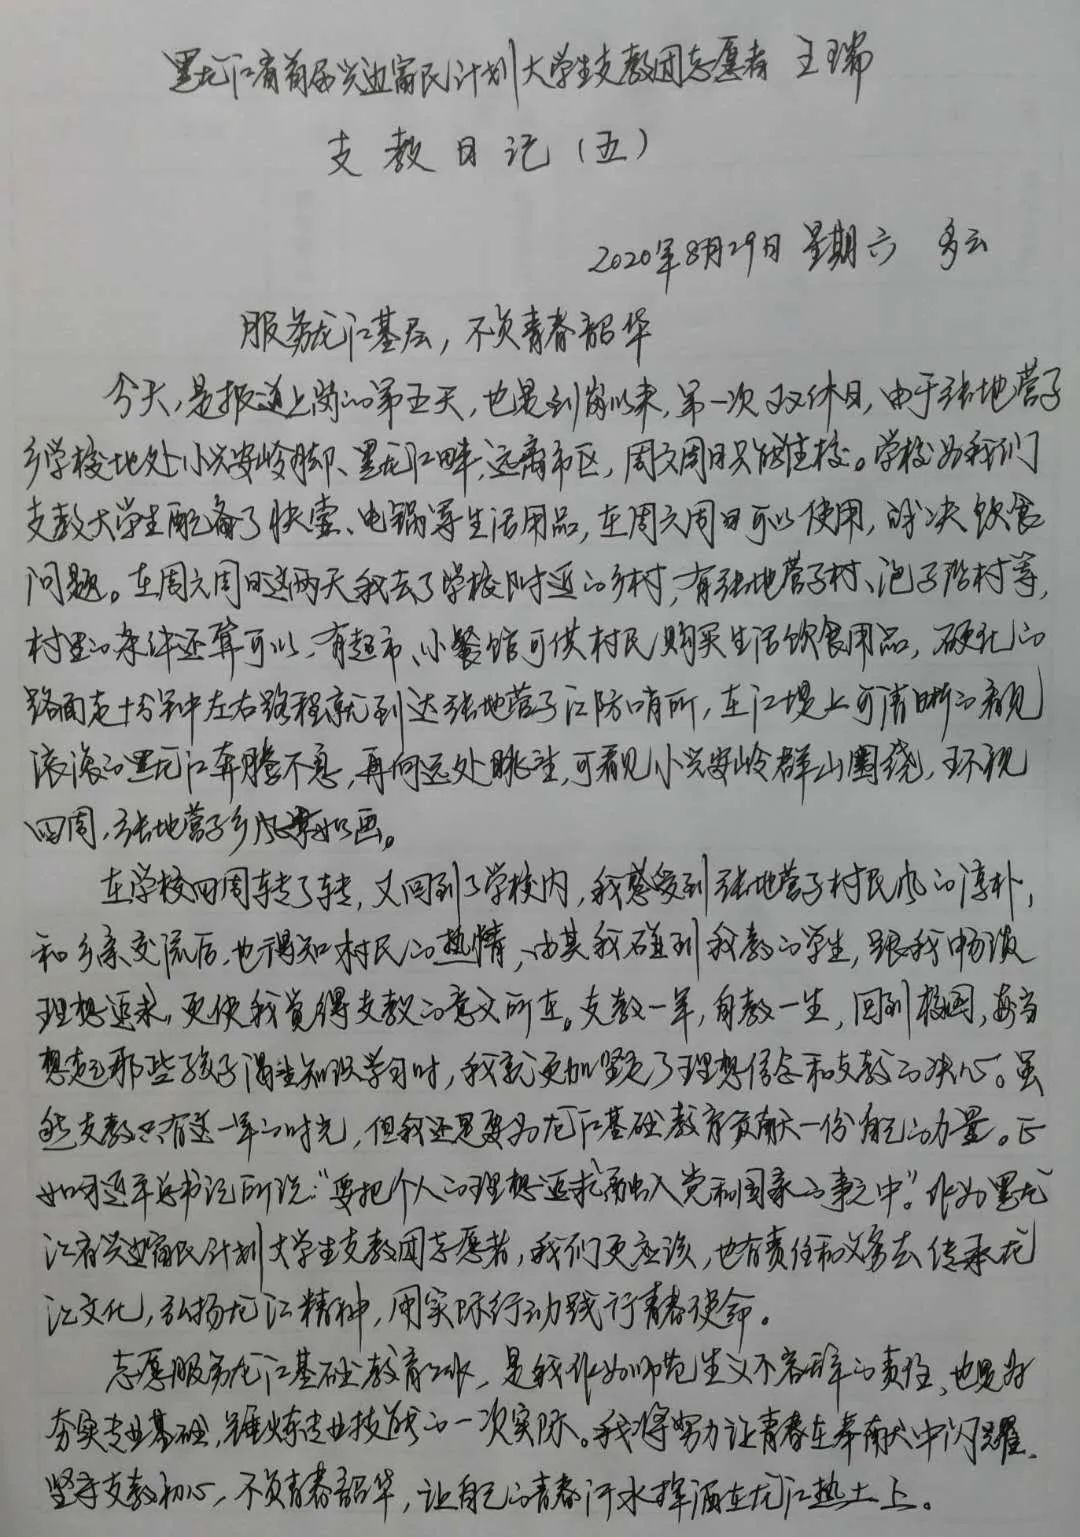 黑龙江省首届兴边富民计划大学生支教团志愿者 王瑞
支教日记（五）
2020年8月29日 星期六 多云
服务龙江基层，不负青春韶华
今天，是报道上岗的第五天，也是到岗以来，第一次双休日，由于张地营子
乡学校地处小兴安岭脚、黑龙江畔，远离市区，周六周日只能住校。学校为我们
支教大学生配备了快壶、电锅等生活用品，在周六周日可以使用，解决饮食
问题。在周六周日这两天我去了学校附近的乡村，有张地营子村、泡子沿村等，
村里的条件还算可以，有超市、小餐馆可供村民购买生活饮食用品，硬化的
路面走十分钟左右路程就到达张地营子江防哨所，在江堤上可清晰的看见
滚滚的黑龙江奔腾不息，再向远处眺望，可看见小兴安岭群山围绕，环视
四周，张地营子乡风景如画。
在学校四周转了转，又回到了学校内，我感受到张地营子村民风的淳朴，
和乡亲交流后，也得知村民的热情，尤其我碰到我教的学生，跟我畅谈
理想追求，更使我觉得支教的意义所在。支教一年，自教一生，回到校园，每当
想起那些孩子渴望知识学习时，我就更加坚定了理想信念和支教的决心。虽
然支教只有这一年的时光，但我还是要为龙江基础教育贡献一份自己的力量。正
如习近平总书记所说：“要把个人的理想追求融入党和国家的事业之中”。作为黑龙
江省兴边富民计划大学生支教团志愿者，我们更应该，也有责任和义务去传承龙
江文化，弘扬龙江精神，用实际行动践行青春使命。
志愿服务龙江基础教育事业，是我作为师范生义不容辞的责任，也是为
夯实专业基础，锤炼专业技能的一次实际。我将努力让青春在奉献中闪耀，
坚守支教初心，不负青春韶华，让自己的青春汗水挥洒在龙江热土上。